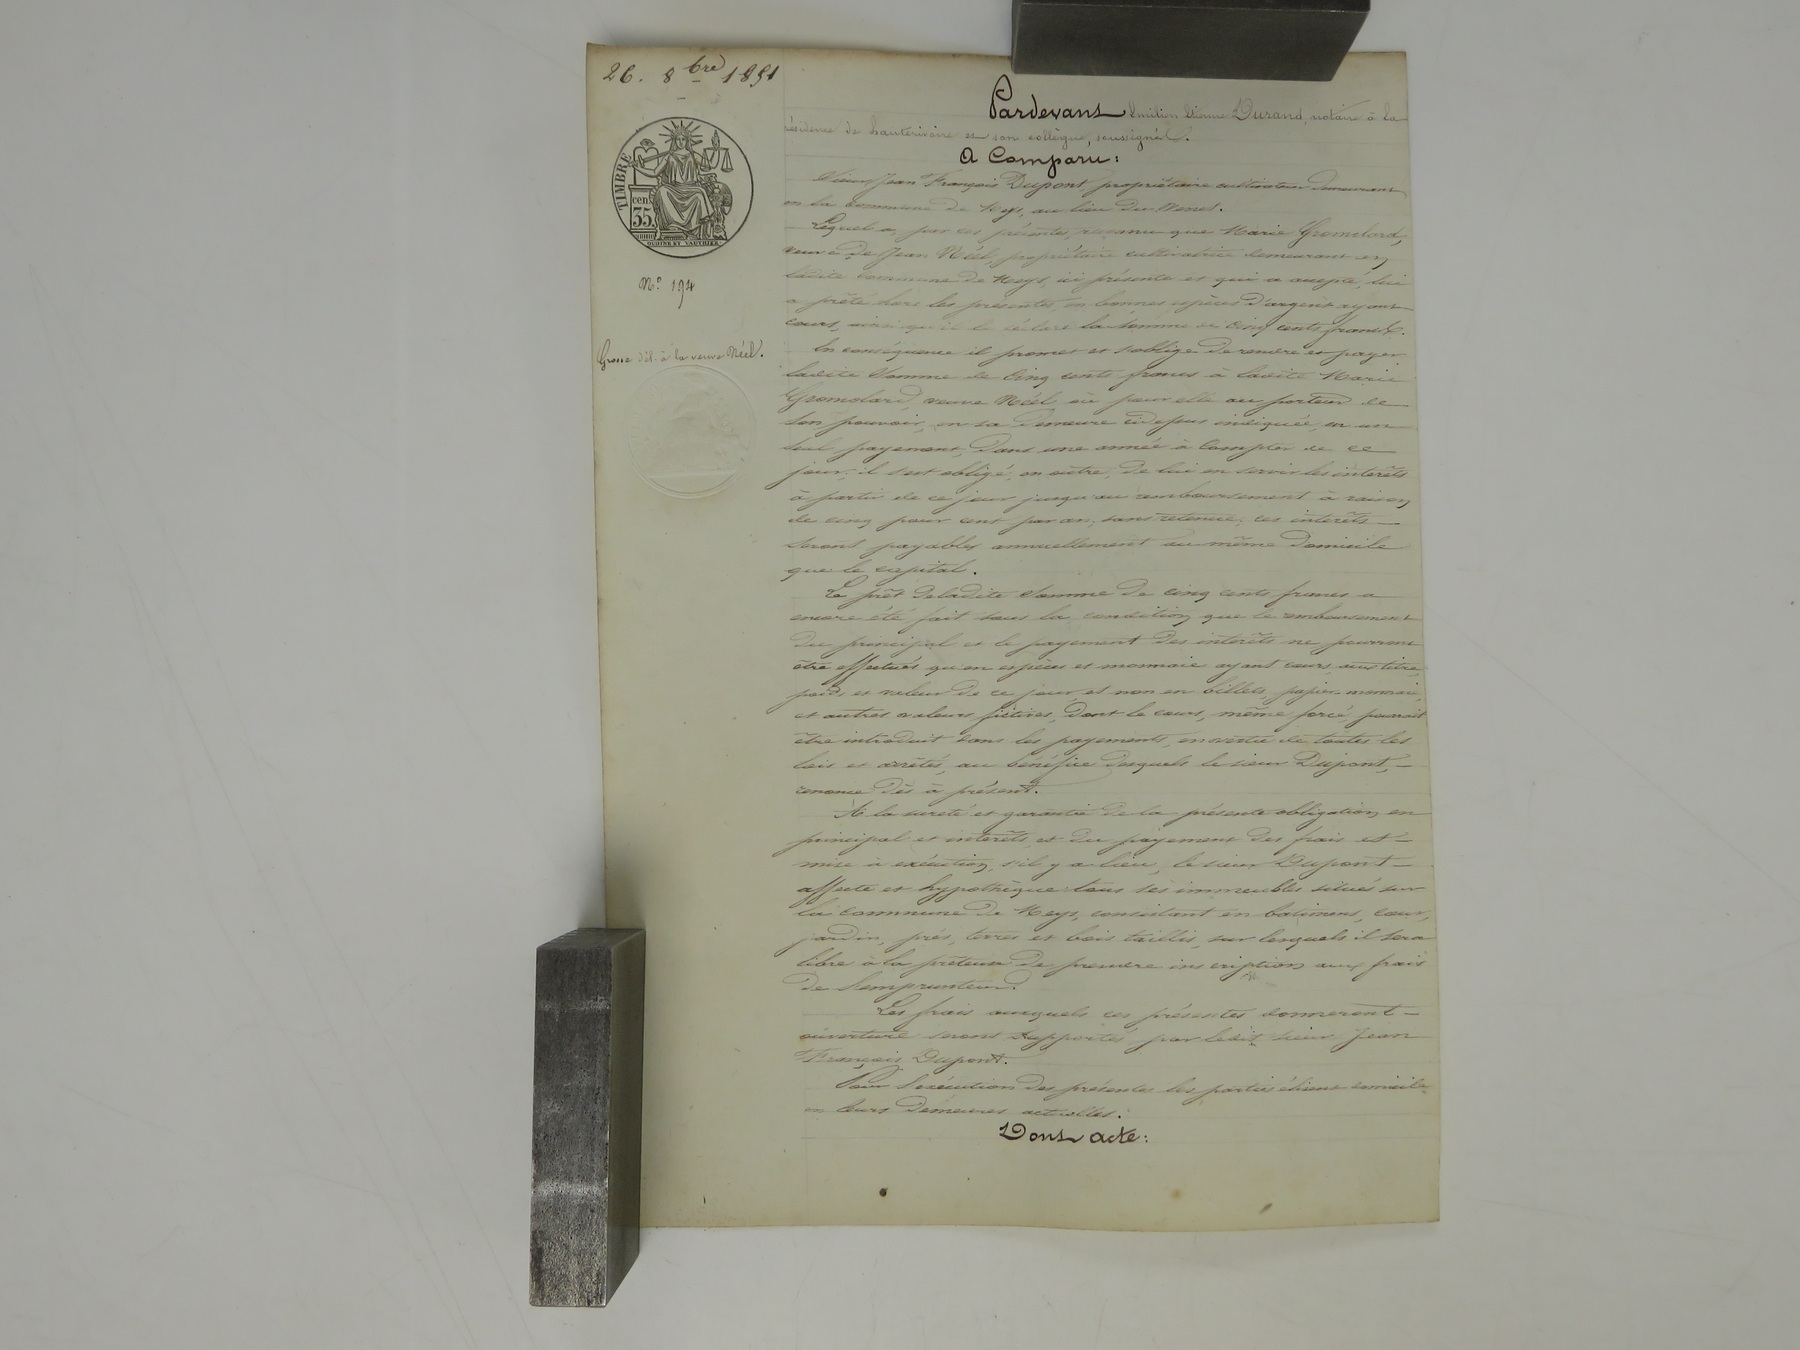 26. 8bre 1851
TIMBRE
cen.
35.
OUDINÉ ET VAUTHIER
N.º 194
Grosse dél. à la veuve Néel.
Pardevant Emilien Etienne Durand, notaire à la
résidence de hauterivoire et son collègue, soussignés.
A Comparu:
Sieur Jean François Dupont, propriétaire cultivateur demeurant
en la commune de Meys, au lieu du
Lequel a, par ces présentes, reconnu que Marie Gromolard,
veuve de Jean Néel, propriétaire cultivatrice demeurant en
ladite commune de Meys, ici présente et qui a accepté, lui
a prêté hors les présentes, en bonnes espèces d'argent ayant
cours, ainsi qu'il le déclare la somme de Cinq cents francs.
En conséquence il promet et s'oblige de rendre et payer
ladite somme de Cinq cents francs à ladite Marie
Gromolard, veuve Néel, ou pour elle au porteur de
son pouvoir, en sa demeure cidessus indiquée, en un
seul payement, Dans une année à Compter de ce
jour; il s'est obligé, en outre, de lui en servir les interêts
à partir de ce jour jusqu'au remboursement à raison
de cinq pour cent par an, sans retenue; ces interêts
seront payables annuellement au même domicile
que le capital.
Le prêt deladite somme de cinq cents francs a
encore été fait sous la condition que le remboursement
du principal et le payement des interêts ne pourront
être effectués qu'en espèces et monnaie ayant cours, aux titre,
poids et valeur de ce jour, et non en billets, papier-monnaie,
et autres valeurs fictives, dont le cours, même forcé, pourrait
être introduit dans les payements, en vertu de toutes les
lois et arrêtés, au bénéfice desquels le sieur Dupont,
renonce dès à présent.
A la sureté et garantie de la présente obligation en
principal et interêts, et du payement des frais et
mise à exécution, s'il y a lieu, le sieur Dupont
affecte et hypothèque tous ses immeubles situés sur
la commune de Meys, consistant en batimens, cour,
jardin, prés, terres et bois taillis, sur lesquels il sera
libre à la prêteuse de prendre inscription aux frais
de l'emprunteur.
Les frais auxquels ces présentes donneront
ouverture seront supportés par ledit sieur Jean
François Dupont.
Pour l'exécution des présentes les parties élisent domicile
en leurs demeures actuelles.
Dont acte: